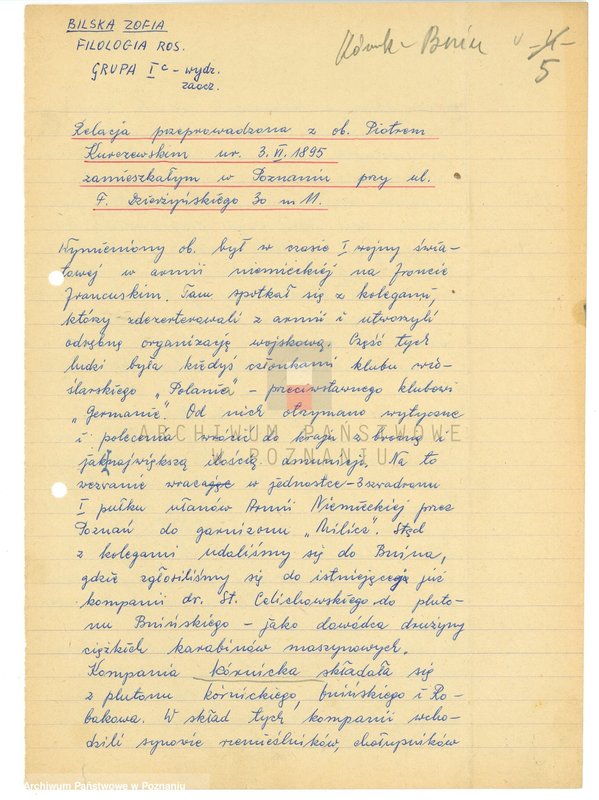 BILSKA ZOFIA
FILOLOGIA ROS.
GRUPA I c - wydz.
zaocz.
Kórnik - Bnin
5
Relacja przeprowadzona z ob. Piotrem
Kurczewskim ur. 3.VI.1895
zamieszkałym w Poznaniu przy ul.
F. Dzierżyńskiego 30 m 11.
Wymieniony ob. był w czasie I wojny świa-
towej w armii niemieckiej na froncie
francuskim. Tam spotkał się z kolegami,
którzy zdezerterowali z armii i utworzyli
odrębną organizację wojskową. Część tych
ludzi była kiedyś członkami klubu wio-
ślarskiego "Polania" - przeciwstawnego klubowi
"Germanie". Od nich otrzymano wytyczne
i polecenia wrócić do kraju z bronią i
jak największą ilością amunicji. Na to
wezwanie wracając w jednostce - 3 szwadronu
I pułku ułanów Armii Niemieckiej przez
Poznań do garnizonu "Milicz". Stąd
z kolegami udaliśmy się do Bnina,
gdzie zgłosiliśmy się do istniejącej już
kompanii dr. St. Celichowskiego do pluto-
nu Bnińskiego - jako dowódca drużyny
ciężkich karabinów maszynowych.
Kompania kórnicka składała się
z plutonu kórnickiego, bnińskiego i Ro-
bakowa. W skład tych kompanii wcho-
dzili synowie rzemieślników, chałupników
ARCHIWUM PAŃSTWOWE
W POZNANIU
Archiwum Państwowe w Poznaniu